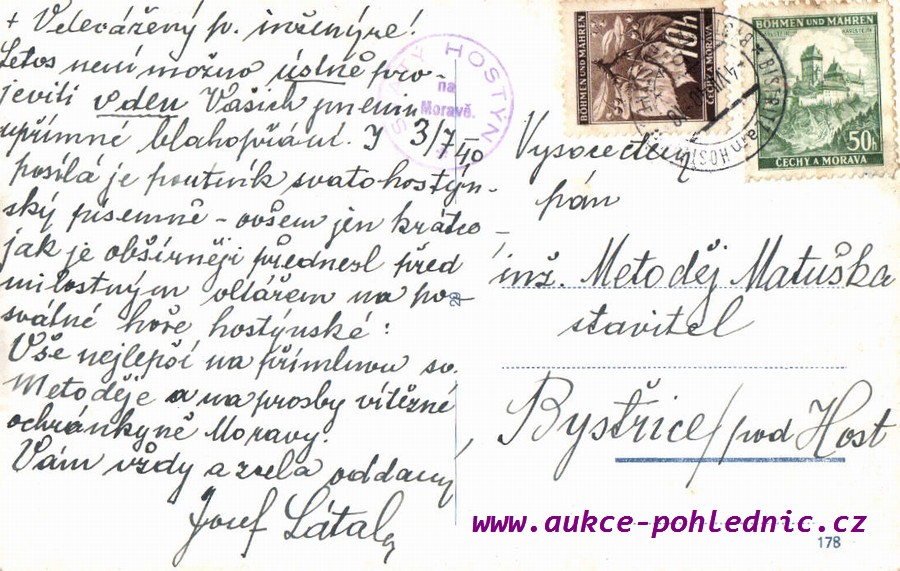 + Velevážený p. inženýre!
Letos není možno ústně pro-
jeviti v den Vašich jmenin
upřímné blahopřání. I 3/7 40
posílá je poutník svatohostýn-
ský písemně - ovšem jen krátce -
jak je obšírněji přednesl před
milostným oltářem na po-
svátné hoře hostýnské:
Vše nejlepší na přímluvu sv.
Metoděje a na prosby vítězné
ochránkyně Moravy.
Vám vždy a zcela oddaný
Josef Látal
SVATÝ HOSTÝN
na
Moravě.
BÖHMEN UND MÄHREN
10h
ČECHY A MORAVA
BÖHMEN UND MÄHREN
KARLSTEIN
50h
ČECHY A MORAVA
Vysocectěný
pán
inž. Metoděj Matuška
stavitel
Bystřice / pod Host
29
www.aukce-pohlednic.cz
178